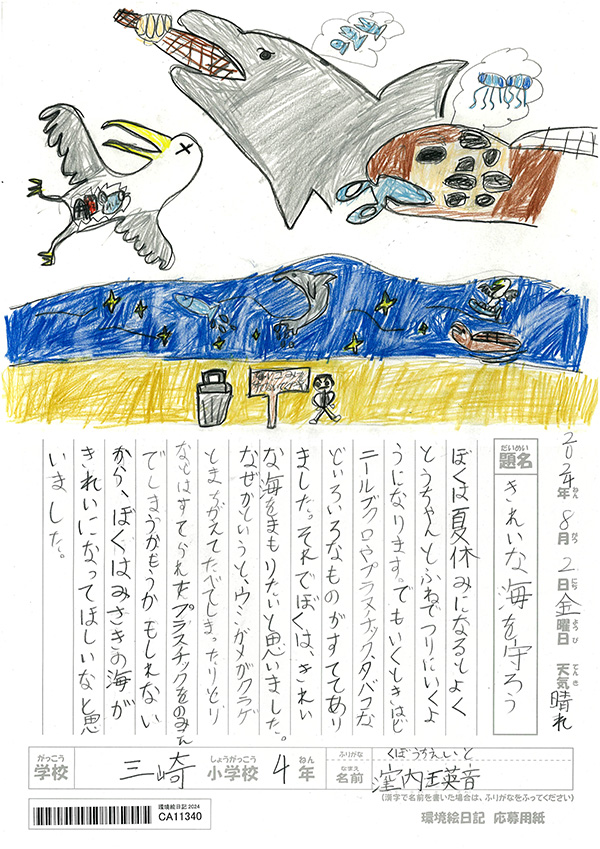 2024年ねん8月がつ2日にち金曜日ようび 天気てんき晴れ
だいめい
題名
きれいな海を守ろう
ぼくは夏休みになるとよく
とうちゃんとふねでつりにいくよ
うになります。でもいくときはビ
ニールブクロやプラスチック、タバコな
どいろいろなものがすててあり
ました。それでぼくは、きれい
な海をまもりたいと思いました。
なぜかというと、ウミガメがクラゲ
とまちがえてたべてしまったりとり
などはすてられたプラスチックをのみこん
でしまうかもうかもしれない
から、ぼくはみさきの海が
きれいになってほしいなと思
いました。
がっこう
学校
三崎
しょうがっこう
小学校
4
ねん
年
ふりがな
なまえ
名前
窪内
英音
(漢字で名前を書いた場合は、ふりがなをふってください)
環境絵日記2024
CA11340
環境絵日記 応募用紙